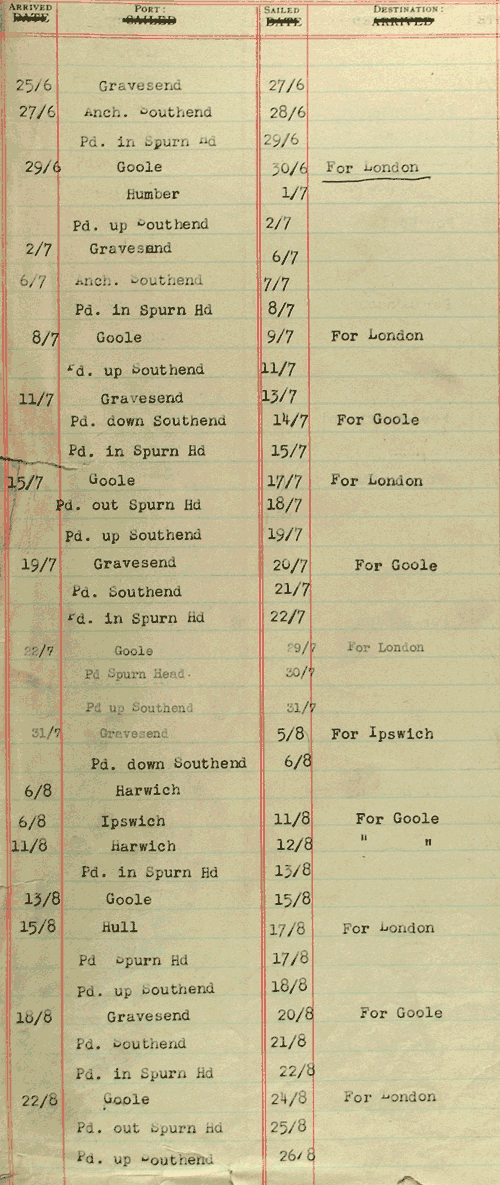 ARRIVED PORT: SAILED DESTINATION:
DATE SAILED DATE ARRIVED
25/6 Gravesend 27/6
27/6 Anch. Southend 28/6
Pd. in Spurn Hd 29/6
29/6 Goole 30/6 For London
Humber 1/7
Pd. up Southend 2/7
2/7 Gravesend 6/7
6/7 Anch. Southend 7/7
Pd. in Spurn Hd 8/7
8/7 Goole 9/7 For London
Pd. up Southend 11/7
11/7 Gravesend 13/7
Pd. down Southend 14/7 For Goole
Pd. in Spurn Hd 15/7
15/7 Goole 17/7 For London
Pd. out Spurn Hd 18/7
Pd. up Southend 19/7
19/7 Gravesend 20/7 For Goole
Pd. Southend 21/7
Pd. in Spurn Hd 22/7
22/7 Goole 29/7 For London
Pd Spurn Head. 30/7
Pd up Southend 31/7
31/7 Gravesend 5/8 For Ipswich
Pd. down Southend 6/8
6/8 Harwich
6/8 Ipswich 11/8 For Goole
11/8 Harwich 12/8 " "
Pd. in Spurn Hd 13/8
13/8 Goole 15/8
15/8 Hull 17/8 For London
Pd Spurn Hd 17/8
Pd. up Southend 18/8
18/8 Gravesend 20/8 For Goole
Pd. Southend 21/8
Pd. in Spurn Hd 22/8
22/8 Goole 24/8 For London
Pd. out Spurn Hd 25/8
Pd. up Southend 26/8